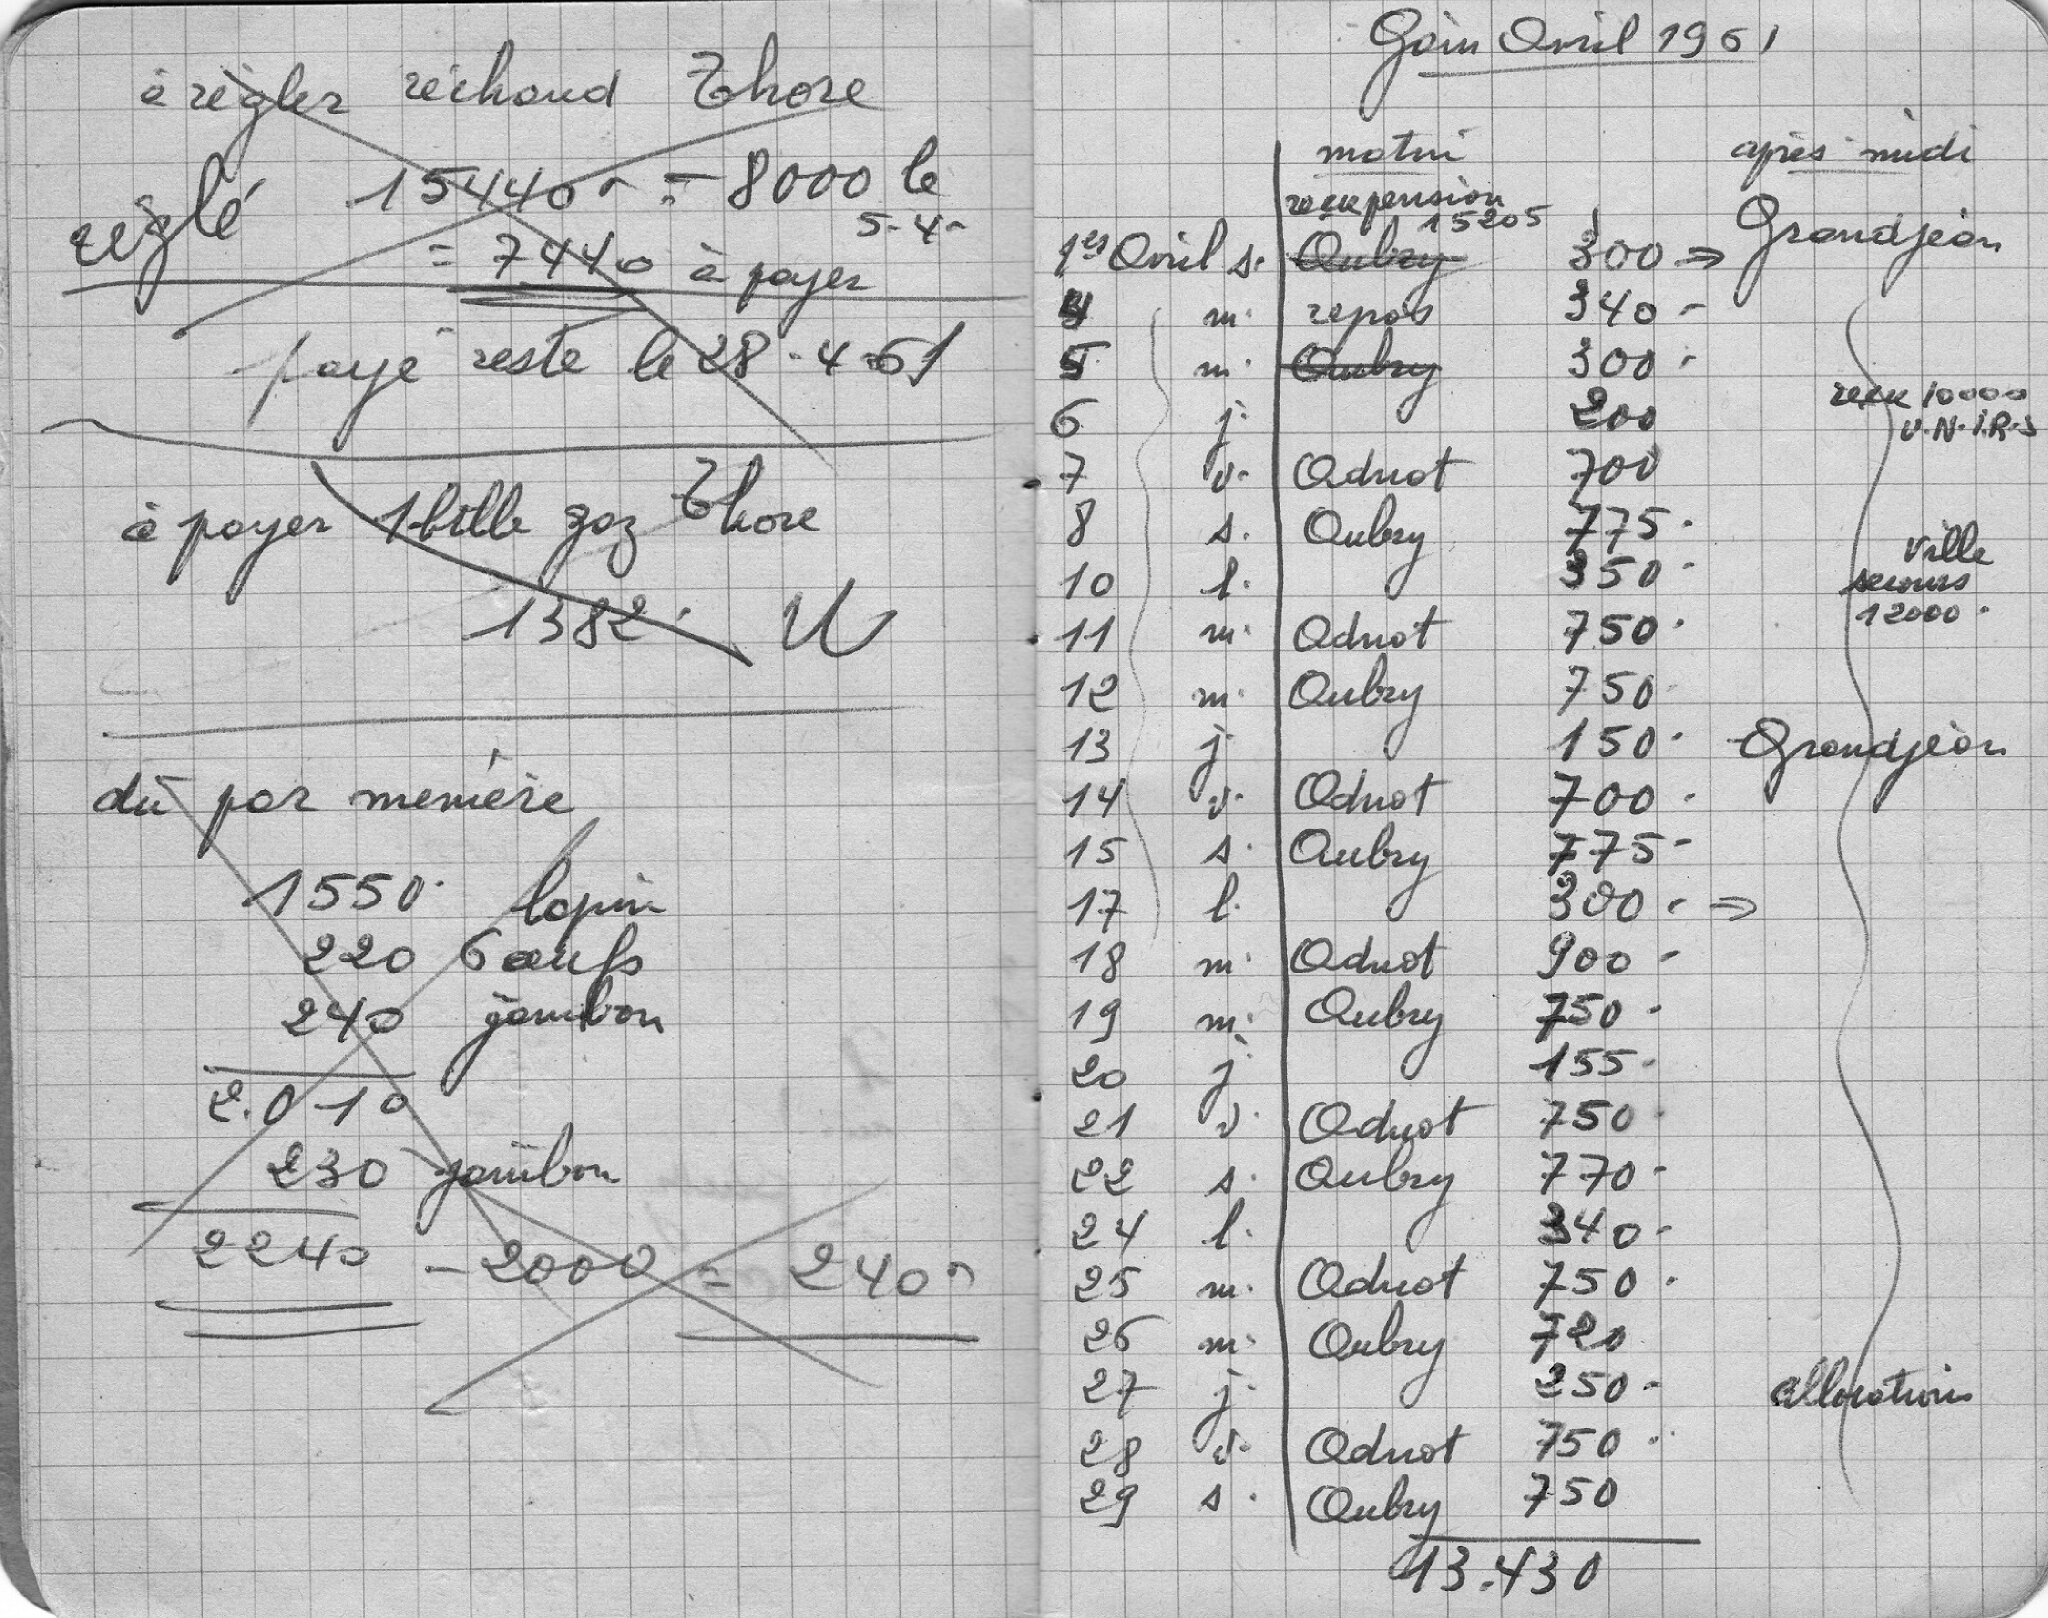 à régler réchaud Thore
réglé 15440 - 8000 le
5-4-
= 7440 à payer
payé reste le 28-4-61
à payer 1 btlle gaz Thore
1382
dû par memère
1550 lapin
220 6 œufs
240 jambon
2.010
230 jambon
2240 - 2000 = 240
Gain Avril 1961
matin après midi
reçu pension
15205
1er Avril s. Aubry 300 ⇒ Grandjean
4 m. repos 340 -
5 m. Aubry 300 -
reçu 10000
6 j. 200
U.N.I.R.S
7 v. Adnot 700
8 s. Aubry 775 -
ville
10 l. 350 -
secours
12000
11 m. Adnot 750 -
12 m. Aubry 750
13 j. 150 - Grandjean
14 v. Adnot 700 -
15 s. Aubry 775 -
17 l. 300 - ⇒
18 m. Adnot 900 -
19 m. Aubry 750 -
20 j. 155 -
21 v. Adnot 750
22 s. Aubry 770 -
24 l. 340 -
25 m. Adnot 750 -
26 m. Aubry 720
27 j. 250 - allocations
28 v. Adnot 750 -
29 s. Aubry 750
13.430